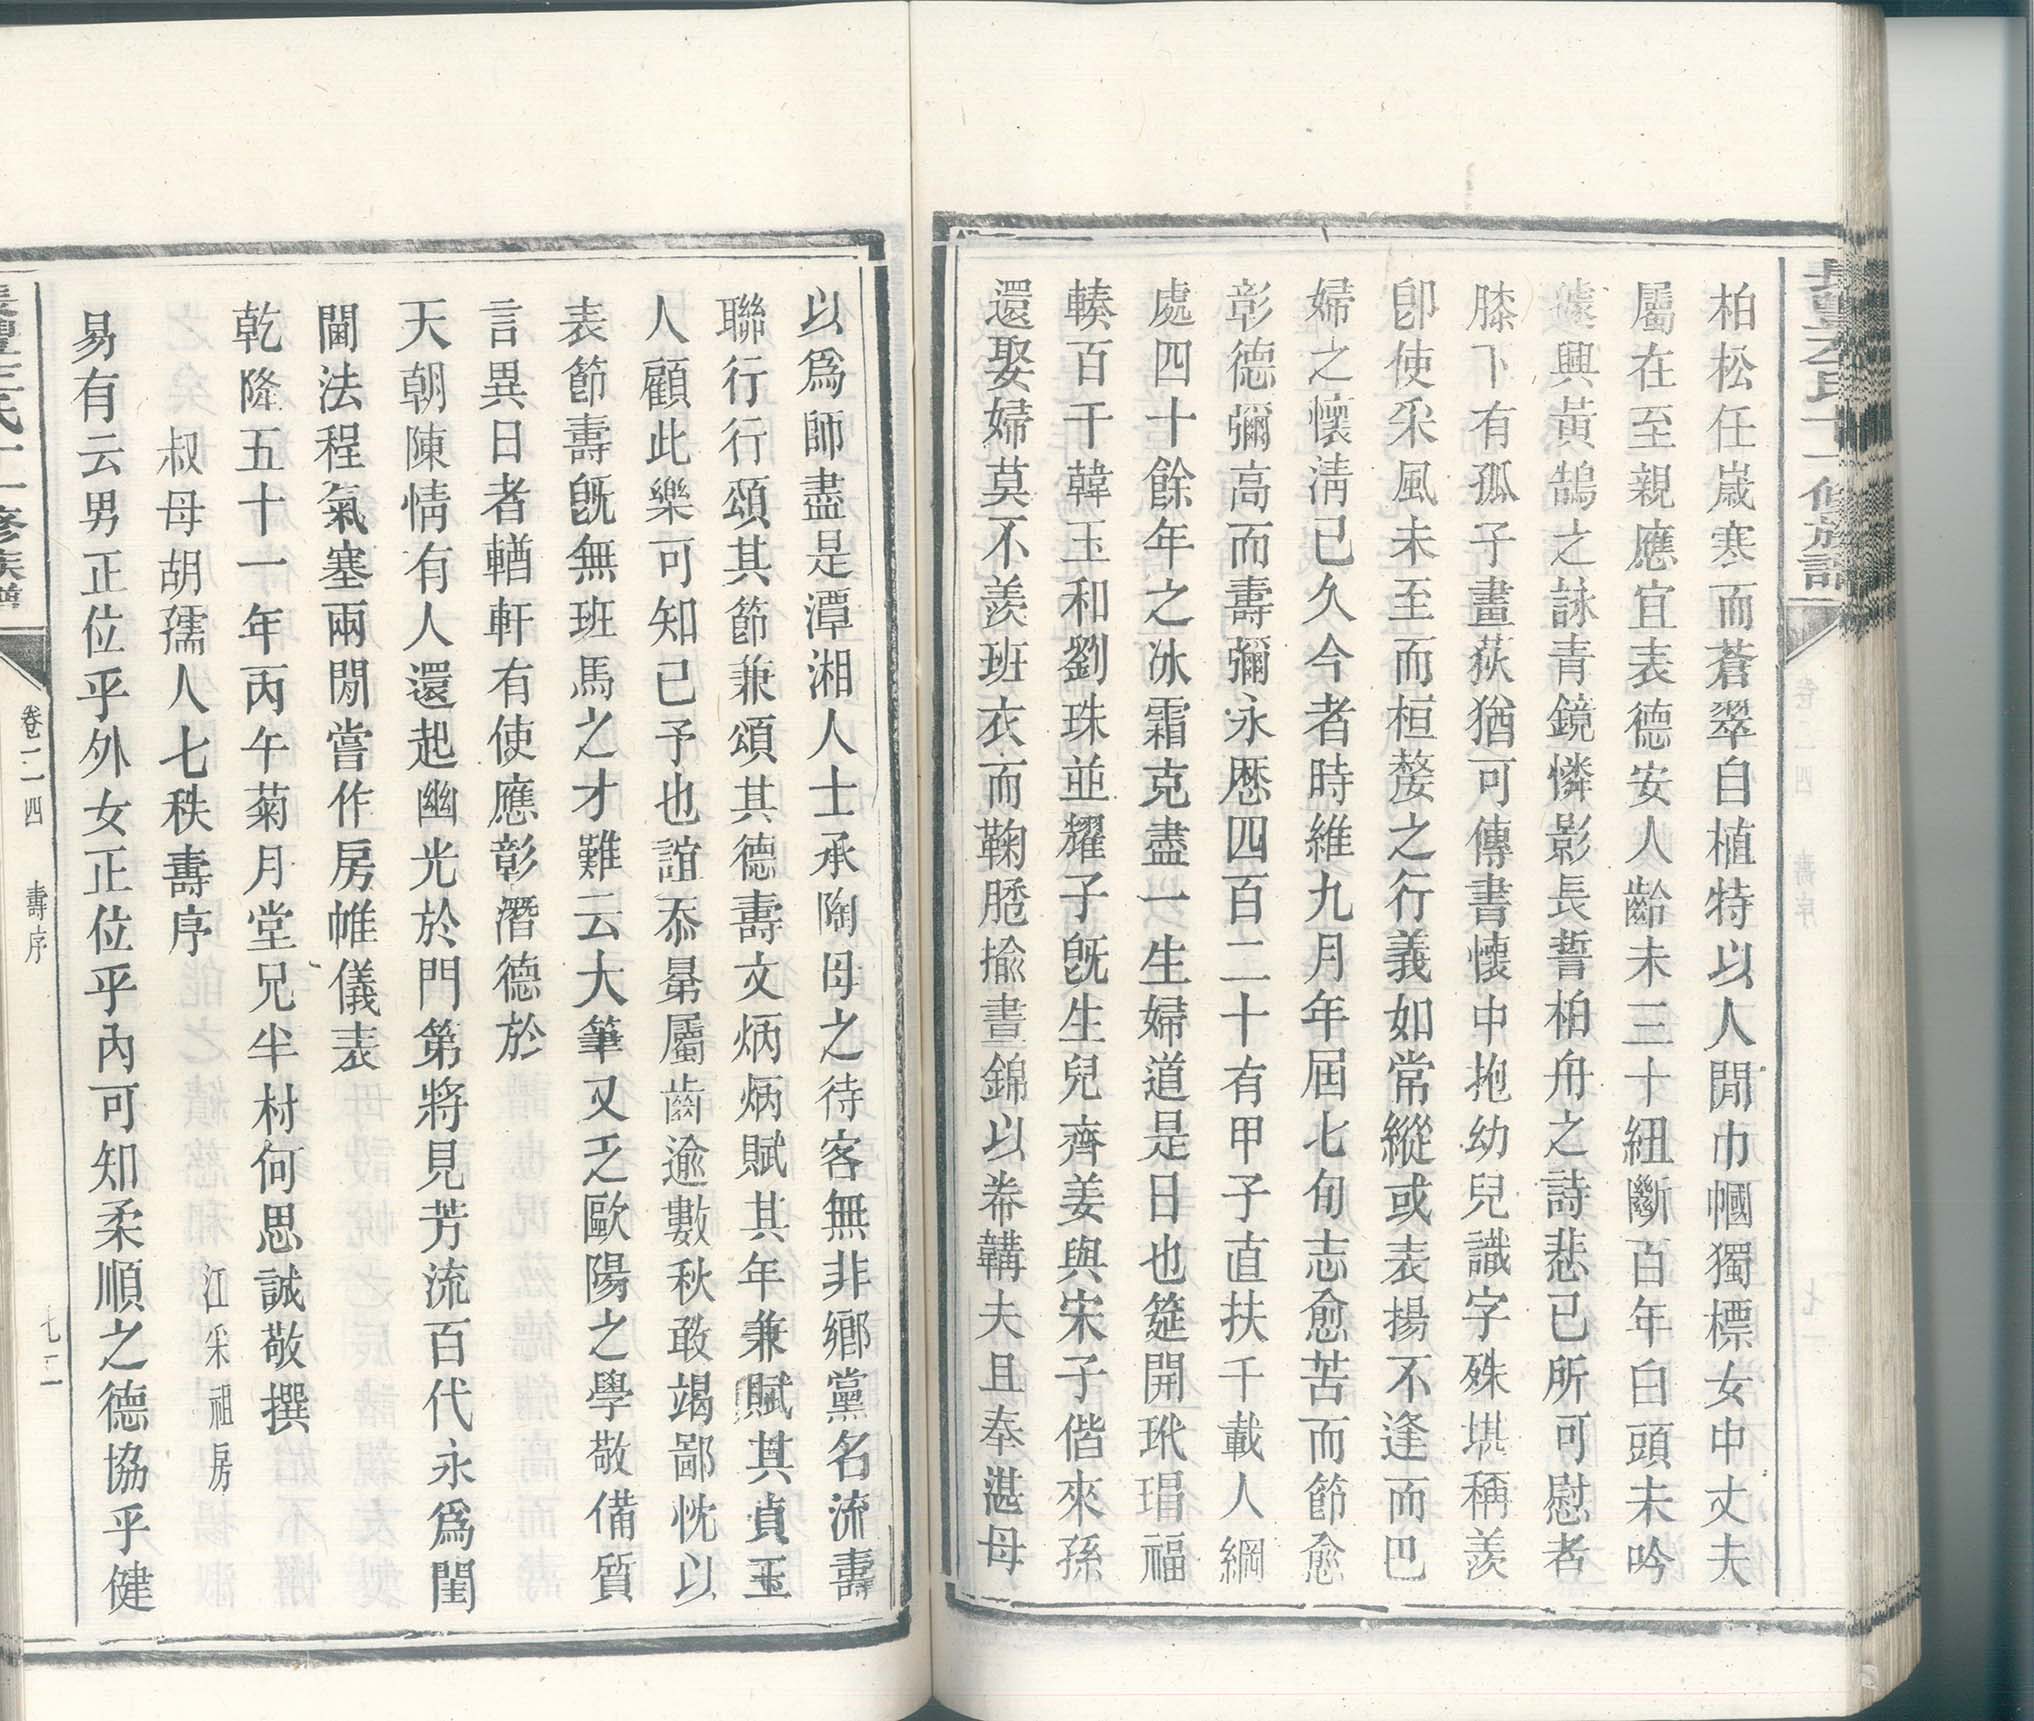 柏松任嵗寒而蒼翠自植特以人閒巾幗獨標女中丈夫
屬在至親應宜表德安人齡未三十紐斷百年白頭未吟
遽興黃鵠之詠青鏡憐影長誓柏舟之詩悲已所可慰者
膝下有孤子畫荻猶可傳書懷中抱幼兒識字殊堪稱羨
卽使采風未至而桓嫠之行義如常縱或表揚不逢而巴
婦之懷淸已久今者時維九月年屆七旬志愈苦而節愈
彰德彌高而壽彌永厯四百二十有甲子直扶千載人綱
處四十餘年之冰霜克盡一生婦道是日也筵開玳瑁福
輳百千韓玉和劉珠並耀子旣生兒齊姜與宋子偕來孫
還娶婦莫不羨班衣而鞠䠆揄晝錦以帣韝夫且奉湛母
以爲師盡是潭湘人士承陶母之待客無非鄕黨名流壽
聯行行頌其節兼頌其德壽文炳炳賦其年兼賦其貞玉
人顧此樂可知已予也誼忝晜屬齒逾數秋敢竭鄙忱以
表節壽旣無班馬之才難云大筆又乏歐陽之學敬備質
言異日者輶軒有使應彰潛德於
天朝陳情有人還起幽光於門第將見芳流百代永爲閨
閫法程氣塞兩閒嘗作房帷儀表
乾降五十一年丙午菊月堂兄半村何思誠敬撰
叔母胡孺人七秩壽序 江釆祖房
易有云男正位乎外女正位乎內可知柔順之德協乎健
卷二四 壽序 七二